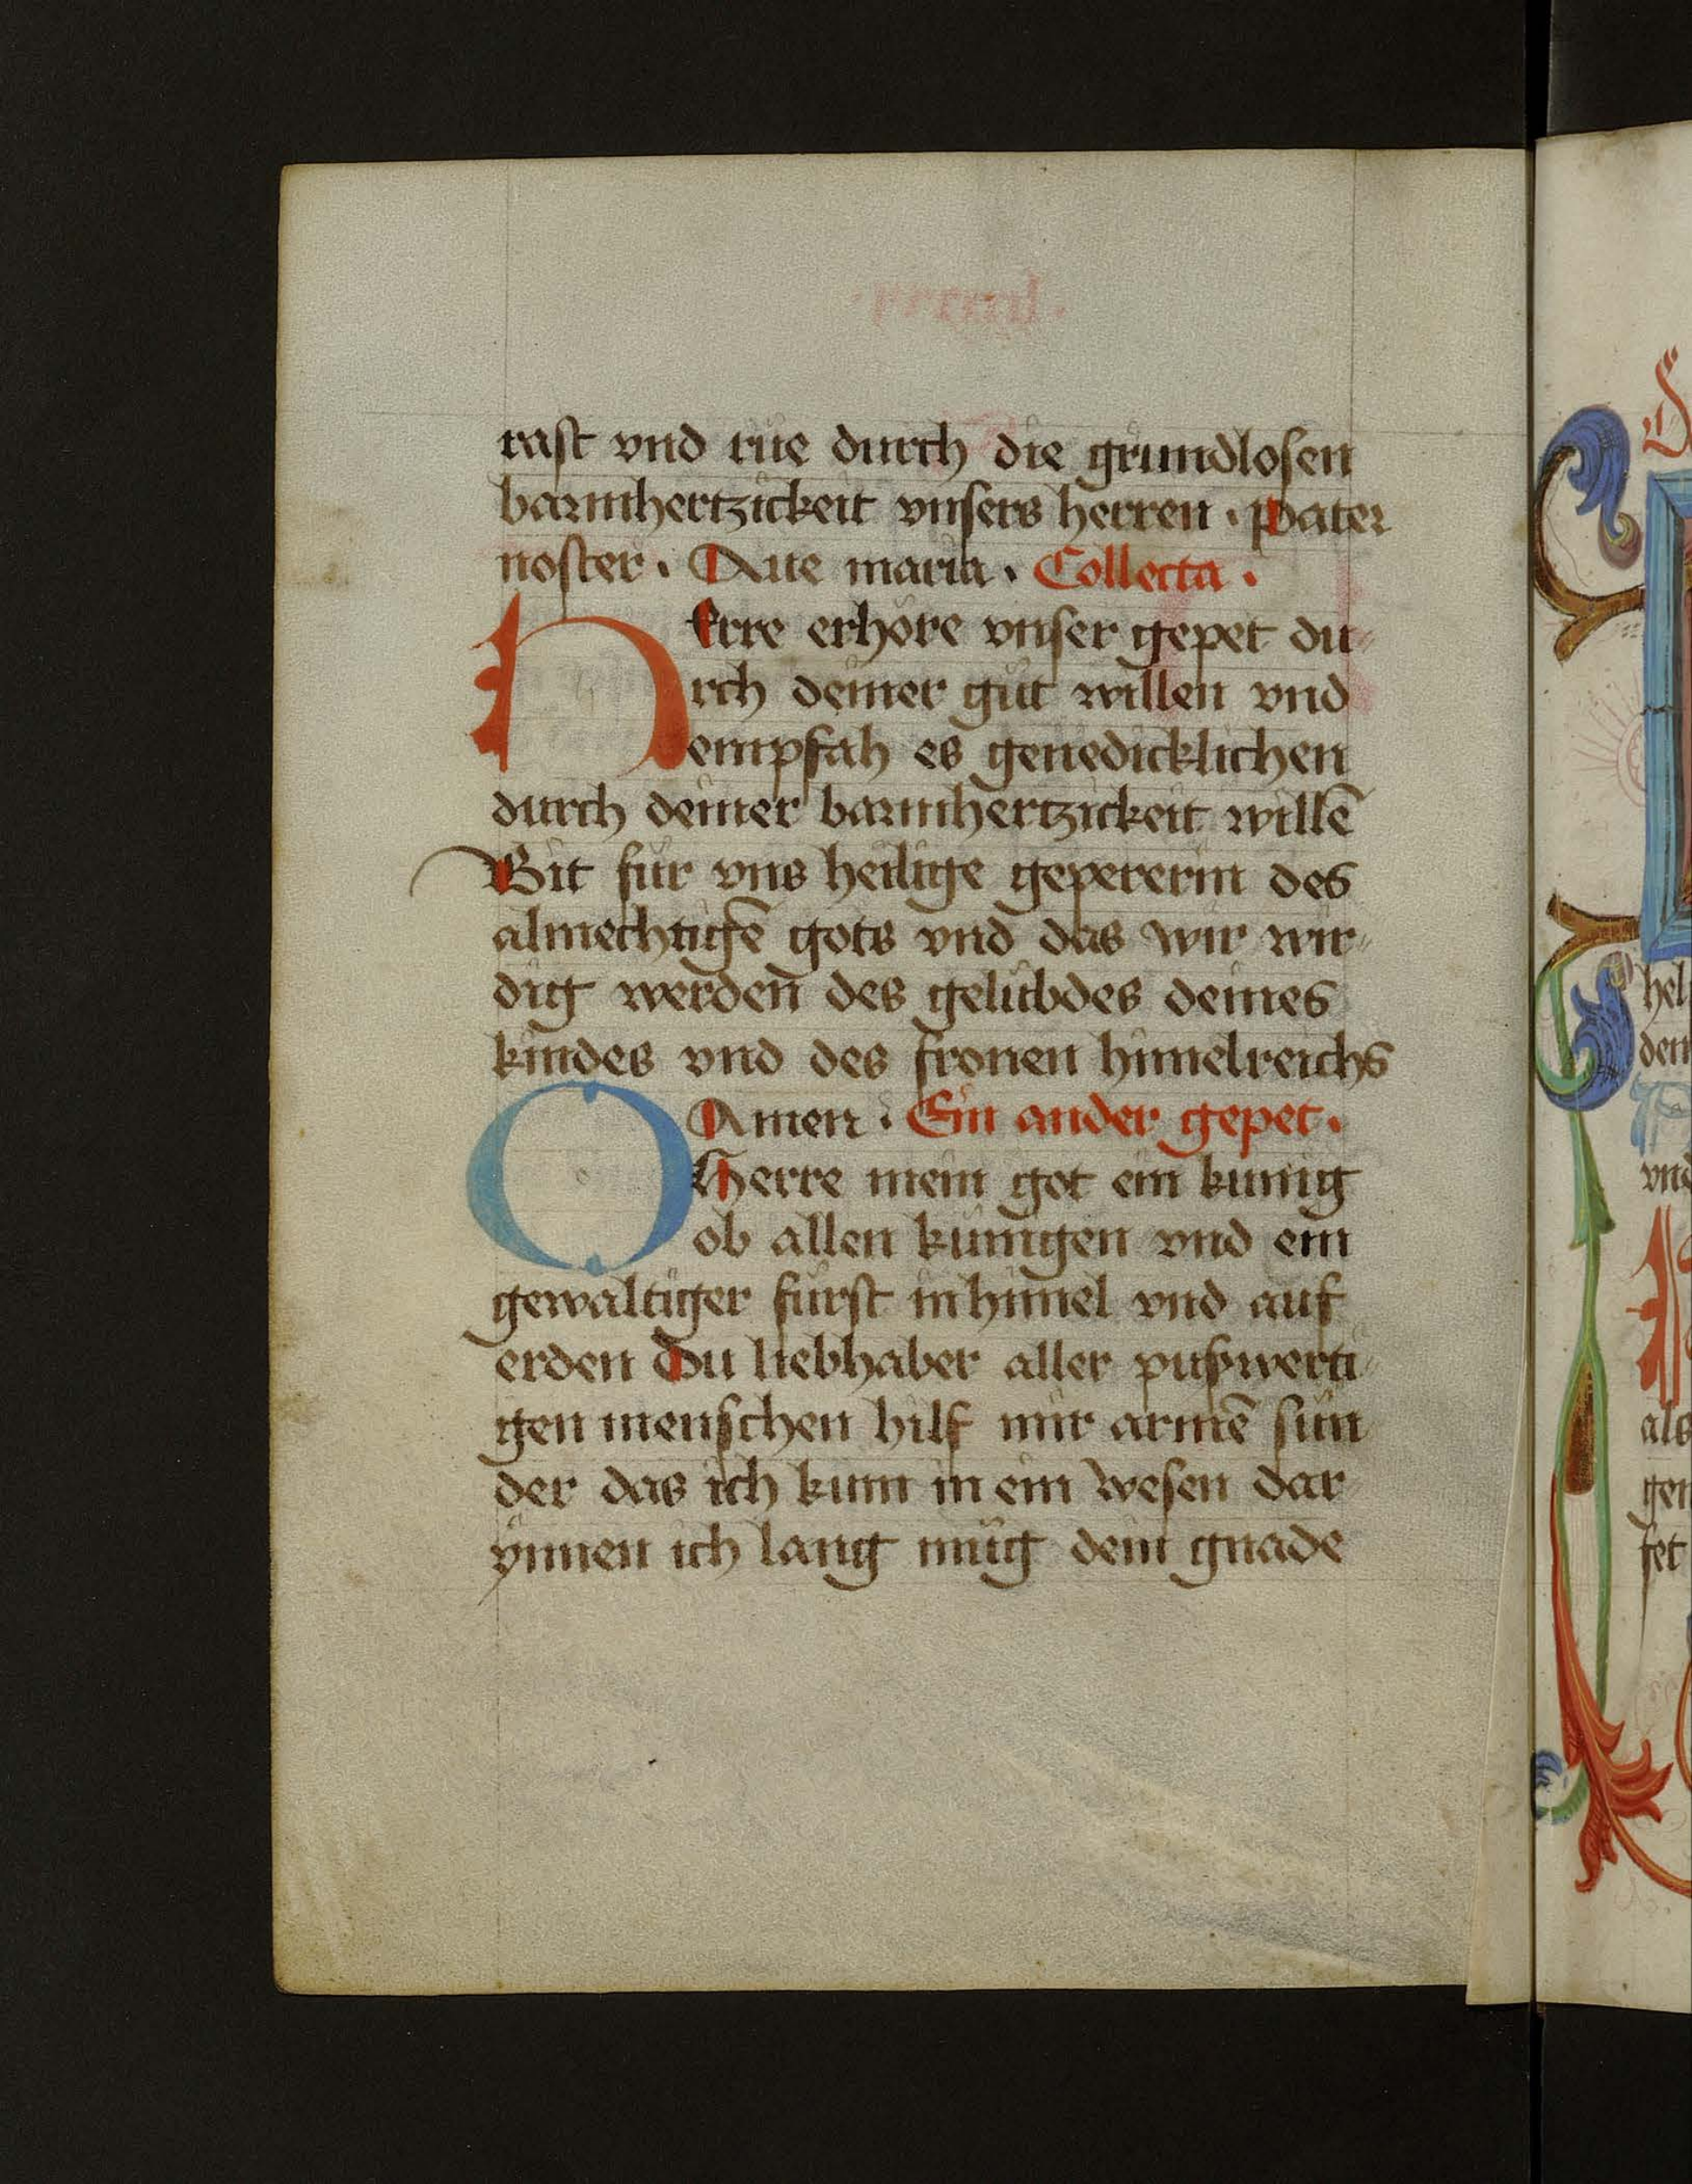 rast vnd rue durch die grundlosen
barmhertzickeit vnsers herren · Pater
noster · Aue maria · Collecta ·
HErre erhöre vnser gepet du⸗
rch deiner güt willen vnd
empfah es genedicklichen
durch deiner barmhertzickeit willē
Bit für vns heilige gepererin des
almechtigē gots vnd das wir wir⸗
dig werden des gelübdes deines
kindes vnd des fronen himelreichs
Amen · Ein ander gepet ·
O Herre mein got ein künig
ob allen künigen vnd ein
gewaltiger fürst in himel vnd auf
erden Du liebhaber aller pußwerti⸗
gen menschen hilf mir armē sün
der das ich kum in ein wesen dar
ynnen ich lang müg dein gnade
hel
den
vnd
als
gen
set